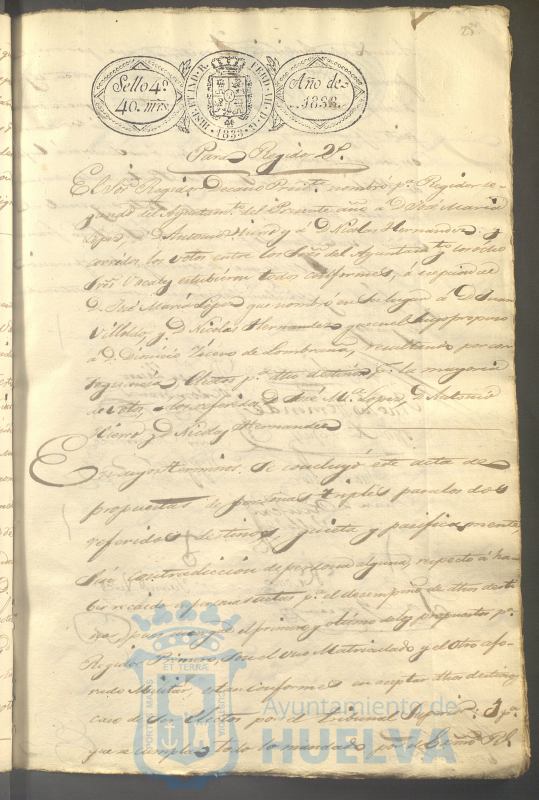 Sello 4º
40. mrs
HISP. ET IND. R.
FERD. VII. D. G.
1833
Año de
1833.
Para Regidor 2º.
El Sor. Regidor Decano Presidte. nombró pa. Regidor se-
gundo del Ayuntamto. del Presente año a D. José Maria
Lopez, D. Antonio y á D. Nicolas Hernandez, y
corridos los votos entre los Sres. del Ayuntamto.
Sres. Vocales estubieron todos conformes, á excepcion de
D. José Maria Lopez que nombró en su lugar á D. Juan
Villalde, y D. Nicolas Hernandez que en el suyo propuso
a D. Dionicio de Lombrana, resultando por con
siguiente Electos pa. dho destino, pr. la mayoria
de votos, los referidos D. José Ma. Lopez, D. Antonio
y D. Nicolas Hernandez
En cuyos terminos se concluyó este acta de
propuestas de personas triples para los dos
referidos destinos, quieta y pacificamente,
sin contradiccion de persona alguna, respecto á ha-
ber recaido en personas aptas pa. el desempeño de dhos desti
nos, pues aunque el primero y ultimo de los propuestos pa.
Regidor Primero, son el uno Matriculado y el otro afo-
rado Militar, estan conformes en aceptar dho destino
caso de ser electos por el Tribunal Superior: Y pa.
que se cumpla todo lo mandado por el Rl.
PORTUS MARIS
ET TERRÆ
CUSTODIA
Ayuntamiento de
HUELVA